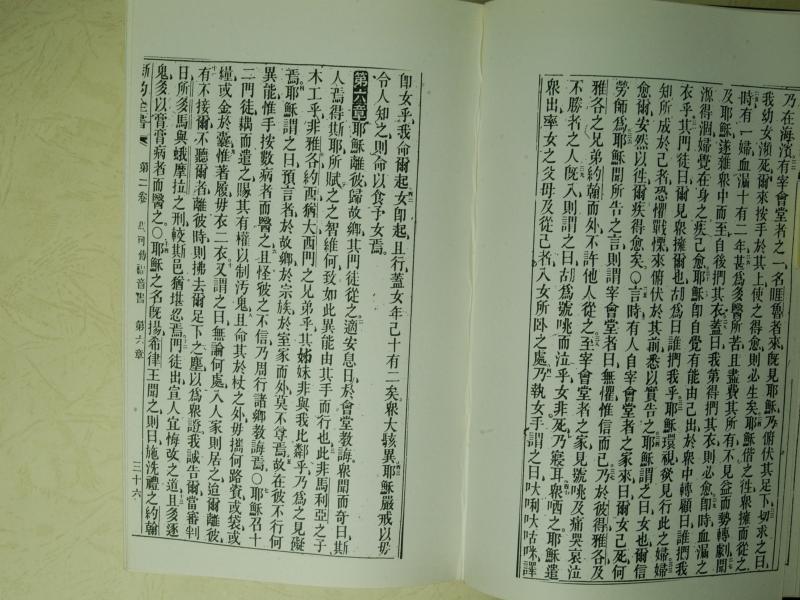 乃在海濱有宰會堂者之一名睚魯者來旣見耶穌乃俯伏其足下切求之曰
我幼女瀕死爾來按手於其上使之得愈則必生矣耶穌偕之徃衆擁而從之
時有一婦血漏十有二年甚爲多醫所苦且盡費其所有不見益而勢轉劇聞
及耶穌遂雜衆中而至自後捫其衣蓋曰我第得捫其衣則必愈卽時血漏之
源得涸婦覺在身之疾已愈耶穌卽自覺有能由己出於衆中轉顧曰誰捫我
衣乎其門徒曰爾見衆擁爾也胡爲曰誰捫我乎耶穌環視欲見行此之婦婦
知所成於己者恐懼戰慄來俯伏於其前悉以實告之耶穌謂之曰女也爾信
愈爾安然以徃爾疾得愈矣〇言時有人自宰會堂者之家來曰爾女已死何
勞師爲耶穌聞所告之言則謂宰會堂者曰無懼惟信而已乃於彼得雅各及
雅各之兄弟約翰而外不許他人從之至宰會堂者之家見號咷及痛哭哀泣
不勝者之人旣入則謂之曰胡爲號咷而泣乎女非死乃寢耳衆哂之耶穌遣
衆出率女之父母及從己者入女所臥之處乃執女手謂之曰大唎大咕咪譯
卽女乎我命爾起女卽起且行蓋女年已十有二矣衆大駭異耶穌嚴戒以毋
令人知之則命以食予女焉
第六章耶穌離彼歸故鄉其門徒從之適安息日於會堂教誨衆聞而奇曰斯
人焉得斯耶所賦之之智維何致如此異能由其手而行也此非馬利亞之子
木工乎非雅各約西猶大西門之兄弟乎其姊妹非與我比鄰乎乃爲之見礙
焉耶穌謂之曰預言者於故鄉於宗族於室家而外莫不尊焉故在彼不行何
異能惟手按數病者而醫之且怪彼之不信乃周行諸鄉教誨焉〇耶穌召十
二門徒耦而遣之賜其有權以制汚鬼且命其於杖之外毋攜何路資或袋或
糧或金於囊惟著履毋衣二衣又謂之曰無論何處入人家則居之迨爾離彼
有不接爾不聽爾者離彼時則拂去爾足下之塵以爲衆證我誠告爾當審判
日所多馬與蛾摩拉之刑較斯邑猶堪忍焉門徒出宣人宜悔改之道且多逐
鬼多以膏膏病者而醫之〇耶穌之名旣揚希律王聞之則曰施洗禮之約翰
新約全書 第二卷 馬可傳福音書 第六章 三十六